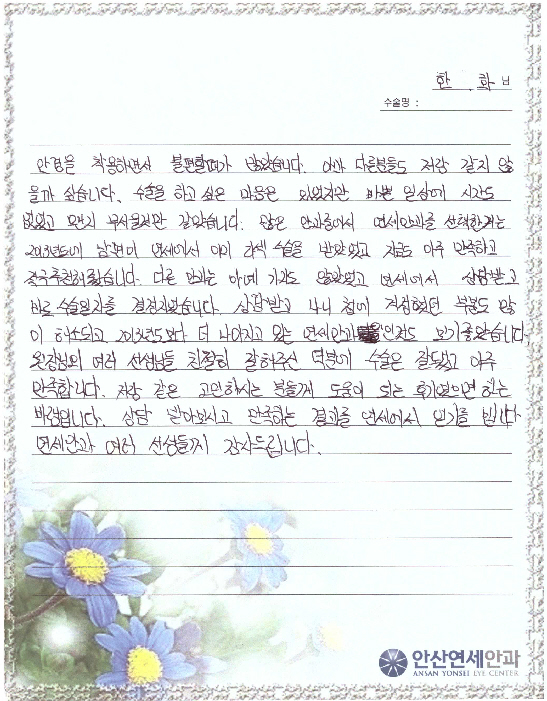 한 화
수술명 :
안경을 착용하면서 불편할때가 많았습니다. 아마 다른분들도 저랑 같지 않
을까 싶습니다. 수술을 하고 싶은 마음은 있었지만 바쁜 일상에 시간도
없었고 왠지 무서울것만 같았습니다. 많은 안과중에서 연세안과를 선택한게는
2013년도에 남편이 연세에서 이미 라식 수술을 받았었고 지금도 아주 만족하고
적극추천해줬습니다. 다른 안과는 아예 가지도 않았었고 연세에서 상담받고
바로 수술일자를 결정지었습니다. 상담받고 나니 첨에 걱정했던 부분도 많
이 해소되고 2013년도보다 더 나아지고 있는 연세안과 보기좋았습니다.
원장님외 여러 선생님들 친절히 잘해주신 덕분에 수술은 잘됐고 아주
만족합니다. 저랑 같은 고민하시는 분들께 도움이 되는 후기였으면 하는
바램입니다. 상담 받아보시고 만족하는 결과를 연세에서 얻기를 빕니다
연세안과 여러 선생들께 감사드립니다.
안산연세안과
ANSAN YONSEI EYE CENTER